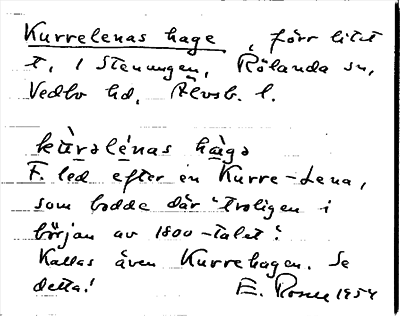 Kurrelenas hage, förr litet
t, i Stenungen, Rölanda sn,
Vedbo hd, Älvsb. l.
kùrəlénas hagə
F. led efter en Kurre-Lena,
som bodde där "troligen i
början av 1800-talet".
Kallas även Kurrehagen. Se
detta! E. Rosell 1954